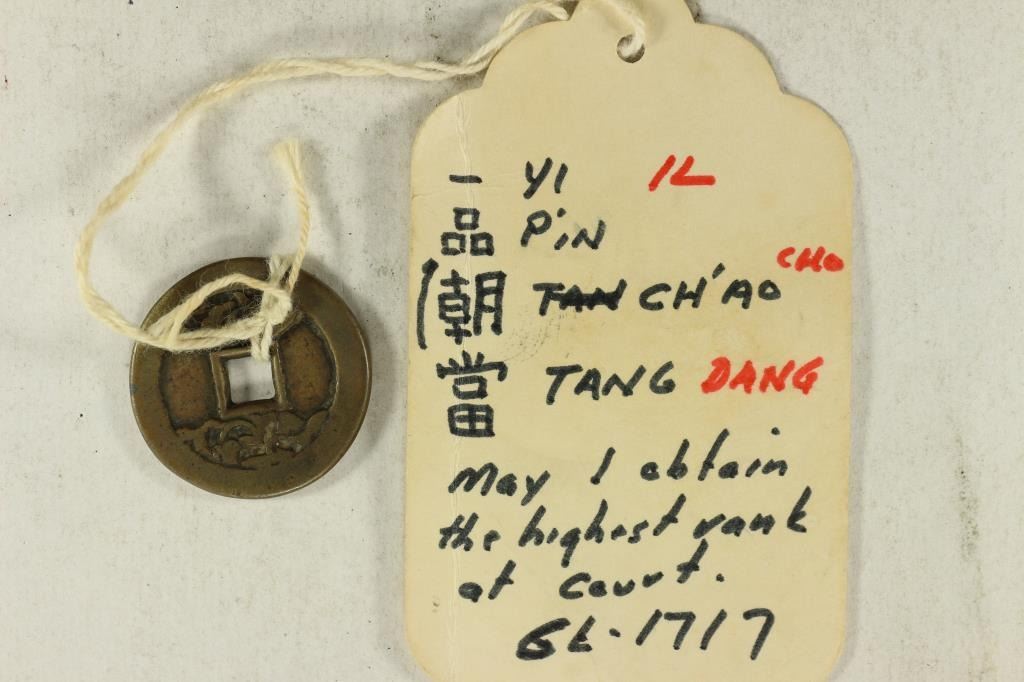 一 YI IL
品 P'IN
朝 TAN CH'AO CHO
當 TANG DANG
May I obtain
the highest rank
at court.
GL-1717